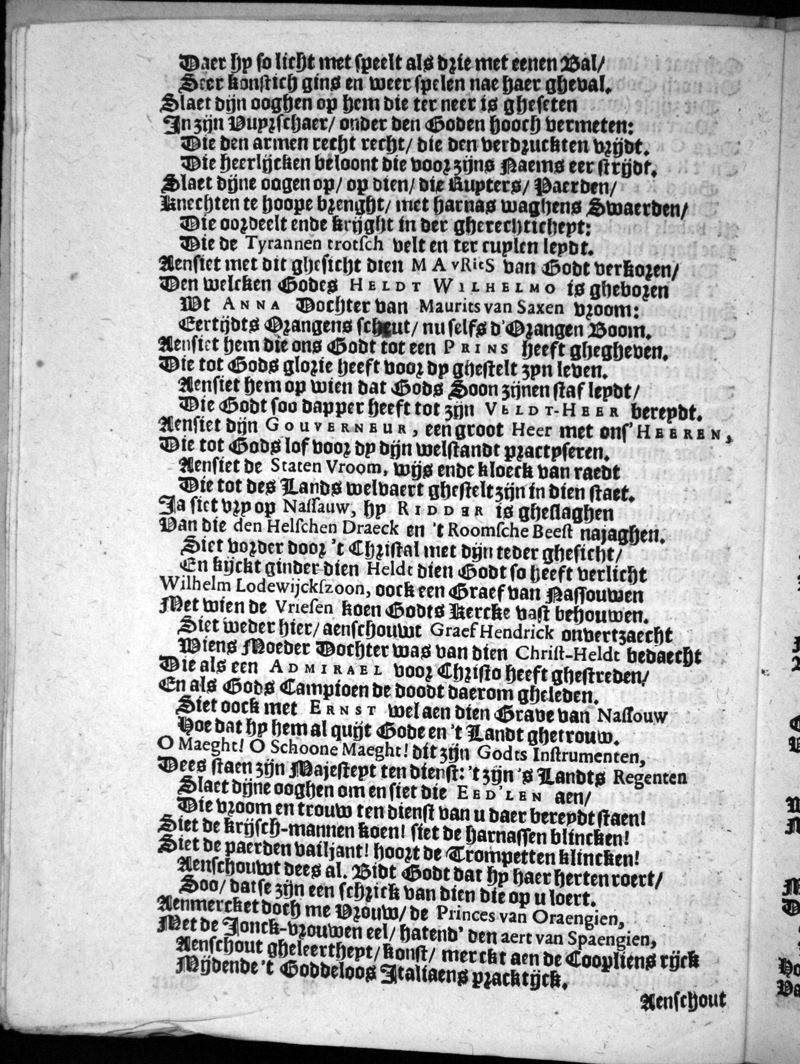 Daer hy so licht met speelt als drie met eenen Bal/
Seer konstich gins en weer spelen nae haer gheval.
Slaet dijn ooghen op hem die ter neer is gheseten
In zijn Vuyrschaer/ onder den Goden hooch vermeten:
Die den armen recht recht/ die den verdruckten vrijdt.
Die heerlijcken beloont die voor zijns Naems eer strijdt.
Slaet dijne oogen op/ op dien/ die Ruyters/ Paerden/
Knechten te hoope brenght/ met harnas waghens Swaerden/
Die oordeelt ende krijght in der gherechticheyt:
Die de Tyrannen trotsch velt en ter cuylen leydt.
Aensiet met dit ghesicht dien MAvRitS van Godt verkoren/
Den welcken Godes HELDT WILHELMO is gheboren
Wt ANNA Dochter van Maurits van Saxen vroom:
Eertijdts Orangens scheut/ nu selfs d'Orangen Boom.
Aensiet hem die ons Godt tot een PRINS heeft ghegheven.
Die tot Gods glorie heeft voor dy ghestelt zyn leven.
Aensiet hem op wien dat Gods Soon zijnen staf leydt/
Die Godt soo dapper heeft tot zijn VELDT-HEER bereydt.
Aensiet dijn GOUVERNEUR, een groot Heer met ons' HEEREN,
Die tot Gods lof voor dy dijn welstandt practyseren.
Aensiet de Staten Vroom, wijs ende kloeck van raedt
Die tot des Lands welvaert ghestelt zijn in dien staet.
Ja siet vry op Nassauw, hy RIDDER is gheslaghen
Van die den Helschen Draeck en 't Roomsche Beest najaghen.
Siet vorder door 't Christal met dijn teder ghesicht/
En kijckt ginder dien Heldt dien Godt so heeft verlicht
Wilhelm Lodewijckszoon, oock een Graef van Nassouwen
Met wien de Vriesen koen Godts Kercke vast behouwen.
Siet weder hier/ aenschouwt Graef Hendrick onvertzaecht
Wiens Moeder Dochter was van dien Christ-Heldt bedaecht
Die als een ADMIRAEL voor Christo heeft ghestreden/
En als Gods Campioen de doodt daerom gheleden.
Siet oock met ERNST wel aen dien Grave van Nassouw
Hoe dat hy hem al quijt Gode en 't Landt ghetrouw.
O Maeght! O Schoone Maeght! dit zijn Godts Instrumenten,
Dees staen zijn Majesteyt ten dienst: 't zijn 's Landts Regenten
Slaet dijne ooghen om en siet die EED'LEN aen/
Die vroom en trouw ten dienst van u daer bereydt staen!
Siet de krijsch-mannen koen! siet de harnassen blincken!
Siet de paerden vailjant! hoort de Trompetten klincken!
Aenschouwt dees al. Bidt Godt dat hy haer herten roert/
Soo/ datse zijn een schrick van dien die op u loert.
Aenmercket doch me Vrouw/ de Princes van Oraengien,
Met de Jonck-vrouwen eel/ hatend' den aert van Spaengien,
Aenschout gheleertheyt/ konst/ merckt aen de Coopliens rijck
Mijdende 't Goddeloos Italiaens practijck.
Aenschout